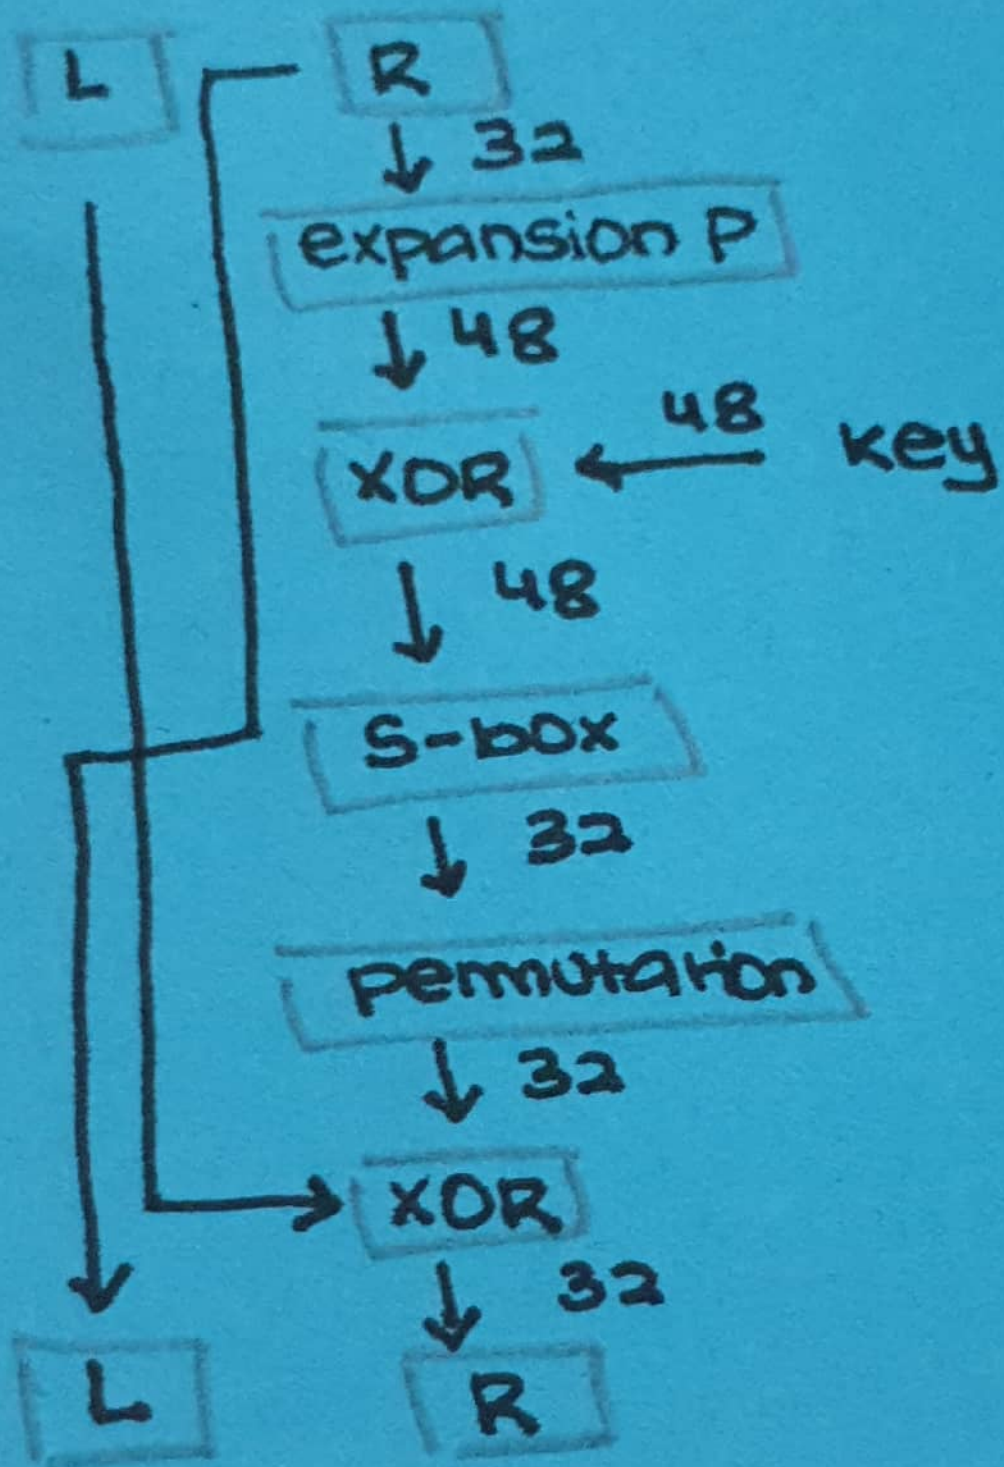 L R
32
expansion P
48
XOR 48 key
48
S-box
32
permutation
32
XOR
32
L R